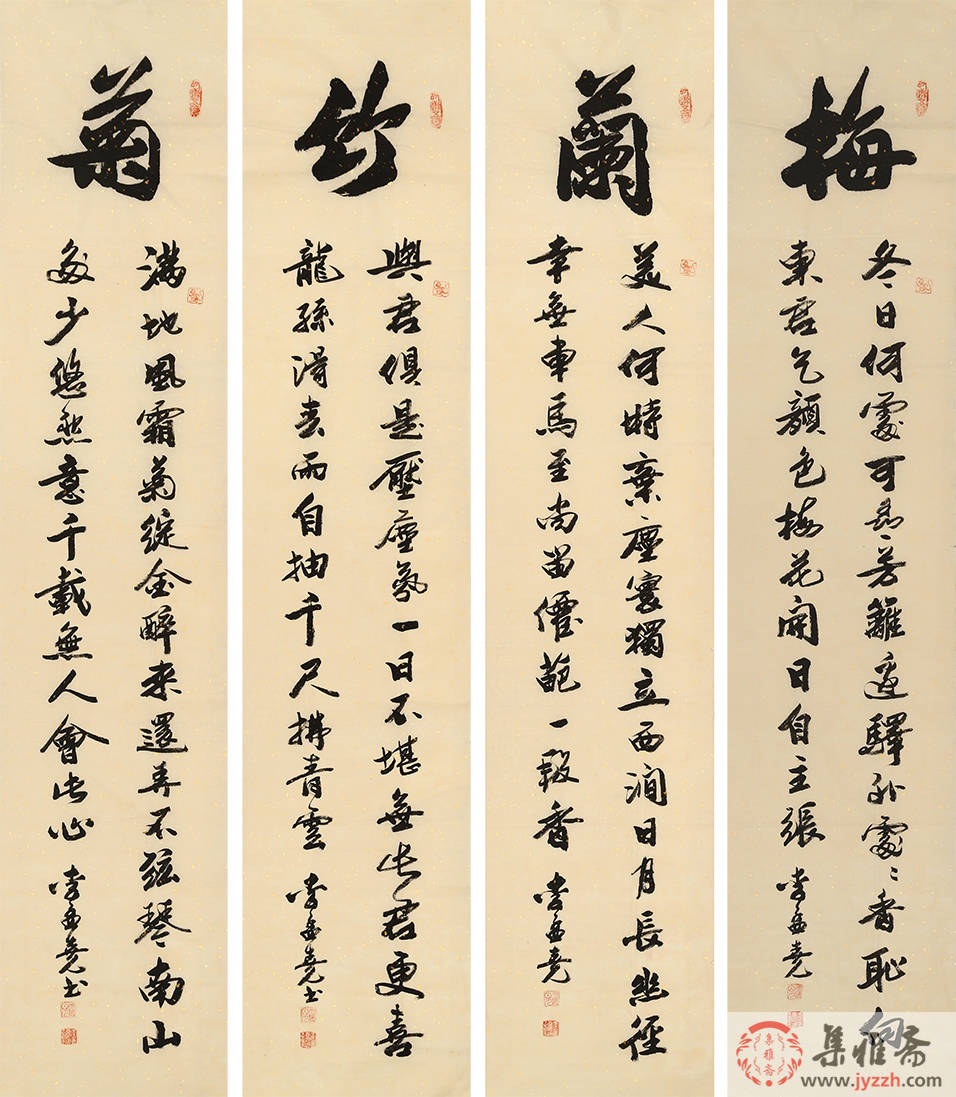 梅
冬日何處可尋芳籬邊驛外處〻香恥向
東君乞顏色梅花開日自主張 李孟堯
蘭
美人何時棄塵寰獨立西澗日月長幽徑
幸無車馬至尚留僊葩一段香 李孟堯
竹
與君俱是壓塵氛一日不堪無此君更喜
龍孫得春雨自抽千尺拂青雲 李孟堯书
菊
滿地風霜菊綻金醉来還弄不弦琴南山
多少悠然意千載無人會此心 李孟堯书
集雅斋
集雅斋
www.jyzzh.com